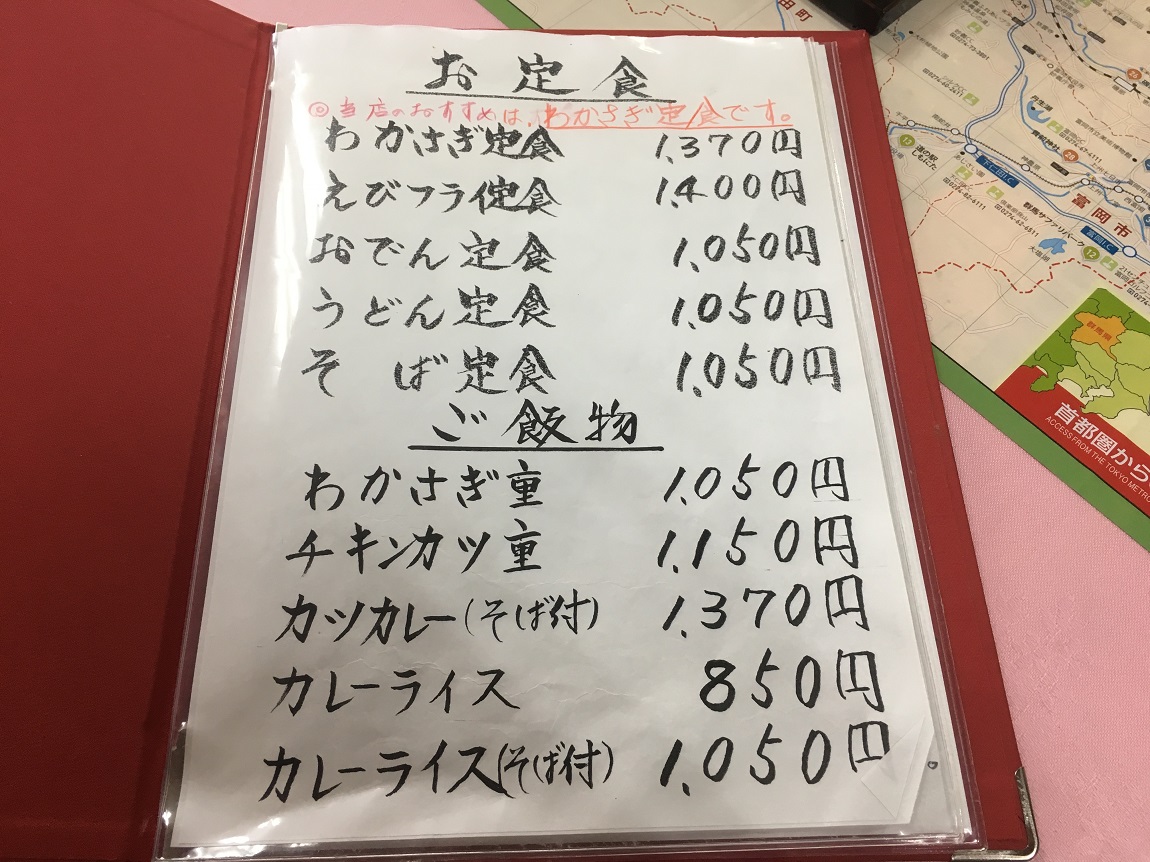 お定食
◎当店のおすすめは、わかさぎ定食です。
わかさぎ定食 1,370円
えびフライ定食 1,400円
おでん定食 1,050円
うどん定食 1,050円
そば定食 1,050円
ご飯物
わかさぎ重 1,050円
チキンカツ重 1,150円
カツカレー(そば付) 1,370円
カレーライス 850円
カレーライス(そば付) 1,050円
田町
道の駅
しもにた
下仁田I.C
富岡市
富岡I.C
群馬サファリパーク
大塩湖
群馬県
首都圏から
ACCESS FROM THE TOKYO METRO